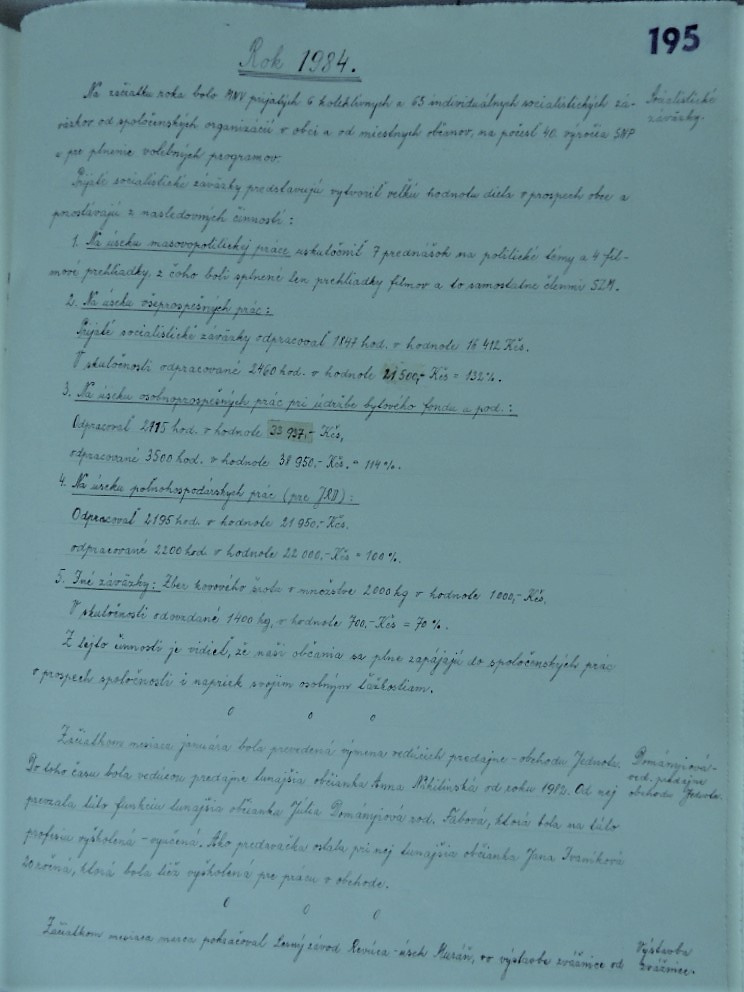 195
Rok 1984.
Na začiatku roka bolo MNV prijatých 6 kolektívnych a 63 individuálnych socialistických zá-
väzkov od spoločenských organizácií v obci a od miestnych občanov, na počesť 40. výročia SNP
a pre plnenie volebných programov.
Socialistické
záväzky.
Prijaté socialistické záväzky predstavujú vytvoriť veľkú hodnotu diela v prospech obce a
pozostávajú z nasledovných činností:
1. Na úseku masovopolitickej práce uskutočniť 7 prednášok na politické témy a 4 fil-
mové prehliadky, z čoho boli splnené len prehliadky filmov a to samostatne členmi SZM.
2. Na úseku všeprospešných prác:
Prijaté socialistické záväzky odpracovať 1847 hod. v hodnote 16 412 Kčs.
V skutočnosti odpracované 2460 hod. v hodnote 21,500,- Kčs = 132%.
3. Na úseku osobnoprospešných prác pri údržbe bytového fondu a pod.:
Odpracovať hod. v hodnote 33 937.- Kčs,
odpracované 3500 hod. v hodnote 38 950.- Kčs. = 114%.
4. Na úseku poľnohospodárskych prác (pre JRD):
Odpracovať 2195 hod. v hodnote 21 950.- Kčs.
odpracované 2200 hod. v hodnote 22 000.- Kčs = 100%.
5. Iné záväzky: Zber kovového šrotu v množstve 2000 kg v hodnote 1000,- Kčs.
V skutočnosti odovzdané 1400 kg, v hodnote 700,- Kčs = 70%.
Z tejto činnosti je vidieť, že naši občania sa plne zapájajú do spoločenských prác
v prospech spoločnosti i napriek svojim osobným ťažkostiam.
0 0 0
Začiatkom mesiaca januára bola prevedená výmena vedúcich predajne - obchodu Jednota.
Do toho času bola vedúcou predajne tunajšia občianka Anna od roku Od nej
prevzala túto funkciu tunajšia občianka Júlia Dományiová rod. Fábová, ktorá bola na túto
profesiu vyškolená - vyučená. Ako predavačka ostala pri nej tunajšia občianka Jana Ivaníková
20 ročná, ktorá bola tiež vyškolená pre prácu v obchode.
Dományiová -
ved. predajne
obchodu Jednota.
0 0 0
Začiatkom mesiaca marca pokračoval Lesný závod Revúca - úsek Muráň, vo výstavbe zvážnice od
Výstavba
zvážnice.